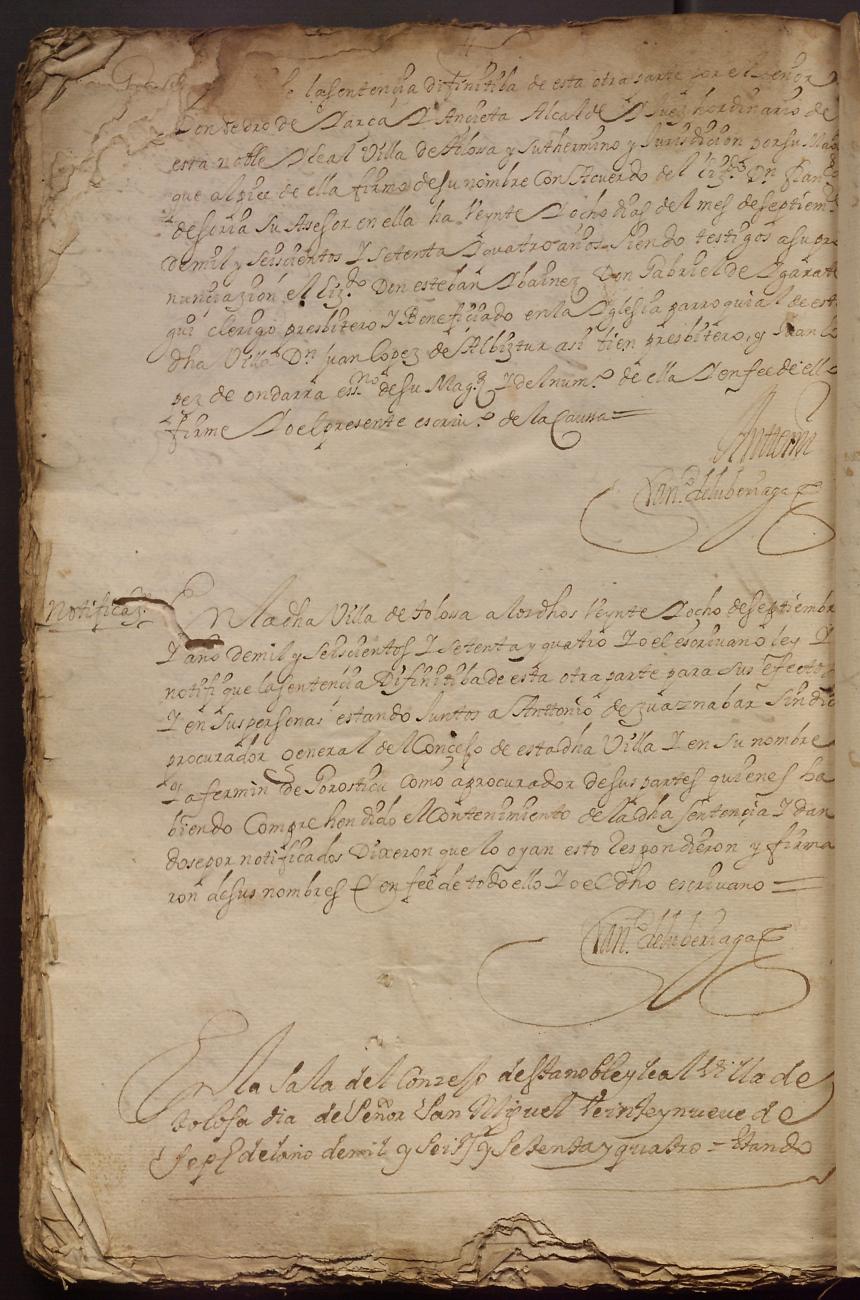 la sentencia difinitiba de esta otra parte por el Señor
Don Pedro de Yarça Y Ancieta Alcalde Y Juez hordinario de
esta noble Y Leal Villa de tolosa y su thermino y Jurisdicion por su Mag.
que al pie de ella firmo de su nombre con Acuerdo del liz.do D.n Fran.co
de soria Su Asesor en ella ha Veynte Y ocho dias del mes de septiem.
de mil y Seiscientos Y setenta Y quatro años siendo testigos a su pro
nunciazion el liz.do Don esteban Ybañez Don Gabriel de Ygarate
gui Clerigo presbitero Y Beneficiado en la Yglesia parroquial de est
dha Villa D.n Juan lopez de Albiztur asi bien presbitero, y Juan lo
pez de ondarra ess.no de su Mag.d Y del num.o de ella Y en fee de ello
firme Yo el presente escriu.o de la Caussa =
Anttemi
Fran.co de lubeniaga
Notificaz.
En la dha Villa de tolossa a los dhos Veynte Y ocho de septiembr
Y año de mil y seiscientos Y setenta y quatro Yo el escriuano ley Y
notifique la sentencia Difinitiba de esta otra parte para sus efectos
Y en sus personas estando Juntos a Anttonio de zuaznabar Sindic
procurador general del Concejo de esta dha Villa Y en su nombre
Y a fermin de Gorosticu como a procurador de sus partes quienes ha
biendo Comprehendido el Contenimiento de la dha sentencia Y dan
dose por notificados Dixeron que lo oyan esto Respondieron y firma
ron de sus nombres E en fee de todo ello Yo el dho escriuano =
Fran.co de lubeniaga
En la Sala del Conzejo desta noble y leal Villa de
tolosa dia de Señor San Miguel Veinte y nueue de
Sep.e del año de mil y Seis.s y Setenta y quatro = Estando